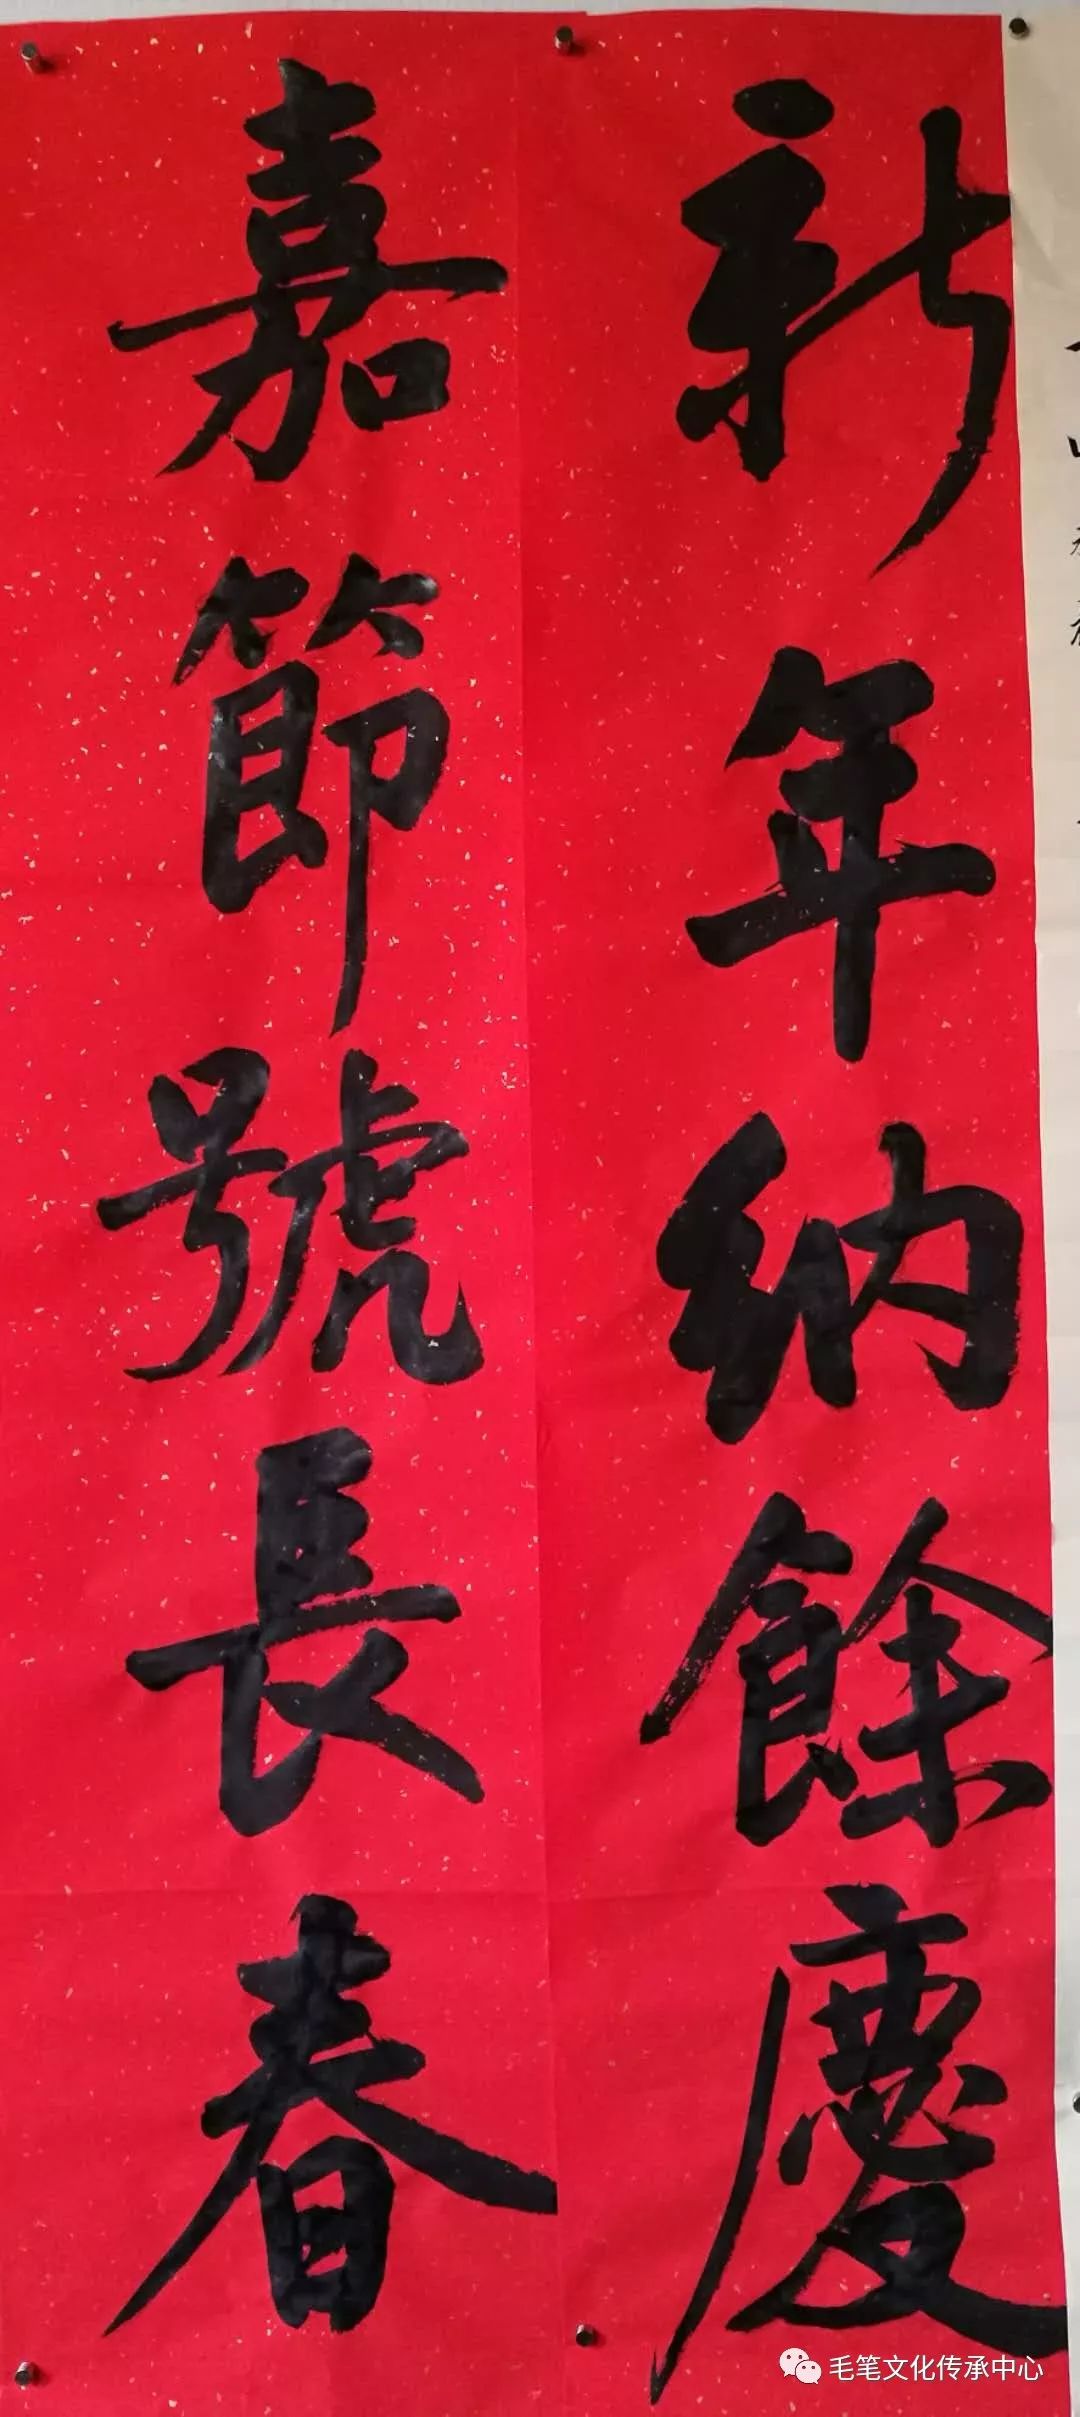 新年納餘慶
嘉節號長春
毛笔文化传承中心